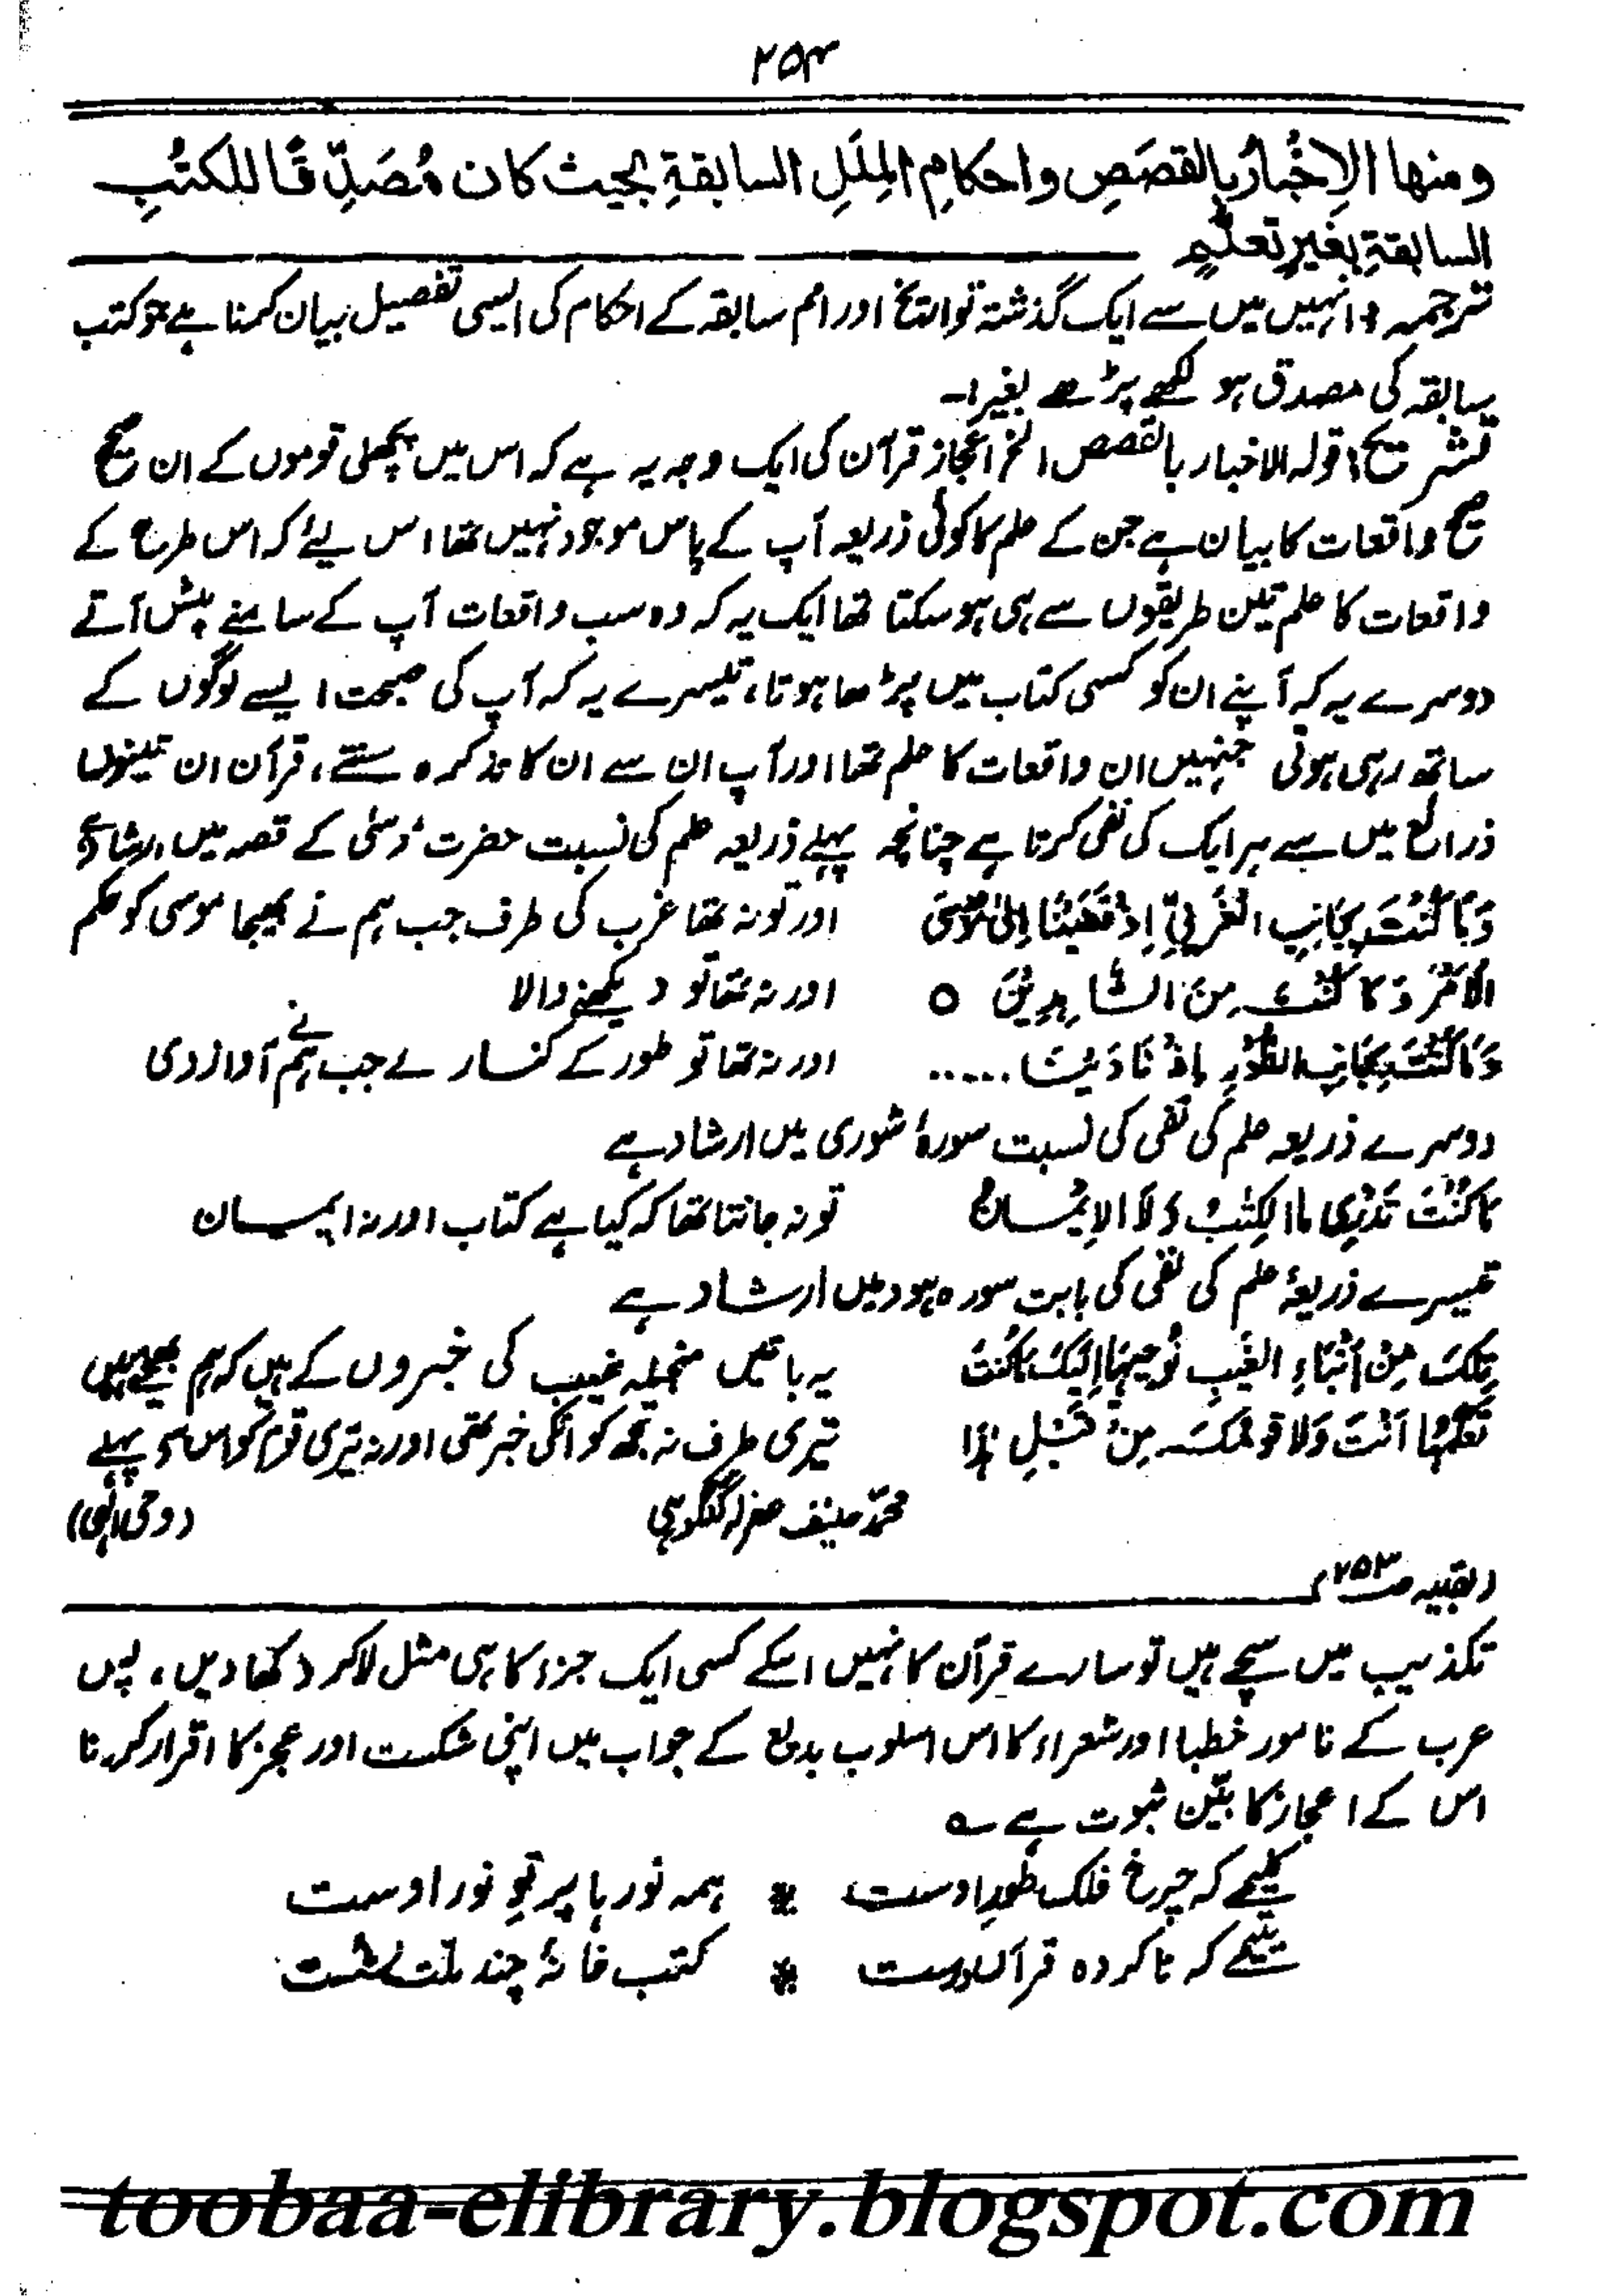 ۲۵۴
ومنها الاِخْبارُ بالقصَصِ واحکامِ المِلَلِ السابقةِ بحیث کان مُصَدِّقًا للکتُبِ
السابقةِ بغیرِ تعلّمٍ
ترجمہ :۔ انہیں میں سے ایک گذشتہ تواریخ اور امم سابقہ کے احکام کی ایسی تفصیل بیان کرنا ہے جو کتب
سابقہ کی مصدق ہو لکھے پڑھے بغیر :۔
تشریح :۔ قولہ الاخبار بالقصص الخ اعجاز قرآن کی ایک وجہ یہ ہے کہ اس میں پچھلی قوموں کے ان صحیح
صحیح واقعات کا بیان ہے جن کے علم کا کوئی ذریعہ آپ کے پاس موجود نہیں تھا اس لیے کہ اس طرح کے
واقعات کا علم تین طریقوں سے ہی ہو سکتا تھا ایک یہ کہ وہ سب واقعات آپ کے سامنے پیش آتے
دوسرے یہ کہ آپنے ان کو کسی کتاب میں پڑھا ہوتا، تیسرے یہ کہ آپ کی صحبت ایسے لوگوں کے
ساتھ رہی ہوتی جنہیں ان واقعات کا علم تھا اور آپ ان سے ان کا تذکرہ سنتے، قرآن ان تینوں
ذرائع میں سے ہر ایک کی نفی کرتا ہے چنانچہ پہلے ذریعہ علم کی نسبت حضرت موسیٰ کے قصہ میں ارشاد ہے
وَمَا کُنْتَ بِجَانِبِ الْغَرْبِیِّ اِذْ قَضَیْنَا اِلیٰ مُوْسَی اور تو نہ تھا غرب کی طرف جب ہم نے بھیجا موسی کو حکم
الْاَمْرَ وَمَا کُنْتَ مِنَ الشَّاہِدِیْنَ ○ اور نہ تھا تو دیکھنے والا
وَمَا کُنْتَ بِجَانِبِ الطُّوْرِ اِذْ نَادَیْنَا ..... اور نہ تھا تو طور کے کنارے جب ہم نے آواز دی
دوسرے ذریعہ علم کی نفی کی نسبت سورۂ شوری میں ارشاد ہے
مَا کُنْتَ تَدْرِی مَا الْکِتٰبُ وَلَا الْاِیْمَانُ تو نہ جانتا تھا کہ کیا ہے کتاب اور نہ ایمان
تیسرے ذریعۂ علم کی نفی کی بابت سورہ ہود میں ارشاد ہے
تِلْکَ مِنْ اَنْبَاءِ الْغَیْبِ نُوْحِیْہَا اِلَیْکَ مَا کُنْتَ یہ باتیں منجملہ غیب کی خبروں کے ہیں کہ ہم بھیجتے ہیں
تَعْلَمُہَا اَنْتَ وَلَا قَوْمُکَ مِنْ قَبْلِ ہٰذَا تیری طرف نہ تجھ کو انکی خبر تھی اور نہ تیری قوم کو اس سے پہلے
محمّد حنیف غفرلہ گنگوہی (وحی الٰہی)
(بقیہ ص۲۵۳)
تکذیب میں سچے ہیں تو سارے قرآن کا نہیں اسکے کسی ایک جزء کا ہی مثل لا کر دکھا دیں، پس
عرب کے نامور خطبا اور شعراء کا اس اسلوب بدیع کے جواب میں اپنی شکست اور عجز کا اقرار کرنا
اس کے اعجاز کا بیّن ثبوت ہے ؎
کلیمے کہ چرخ فلک طورِ اوست * ہمہ نورہا پرتوِ نور اوست
یتیمے کہ ناکردہ قرآں درست * کتب خانۂ چند ملت بشست
toobaa-elibrary.blogspot.com